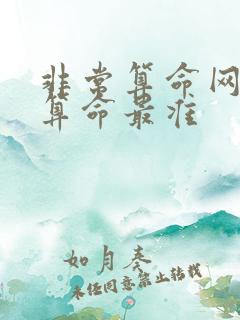 非常算命网
算命最准
如月奏
未经同意禁止转载